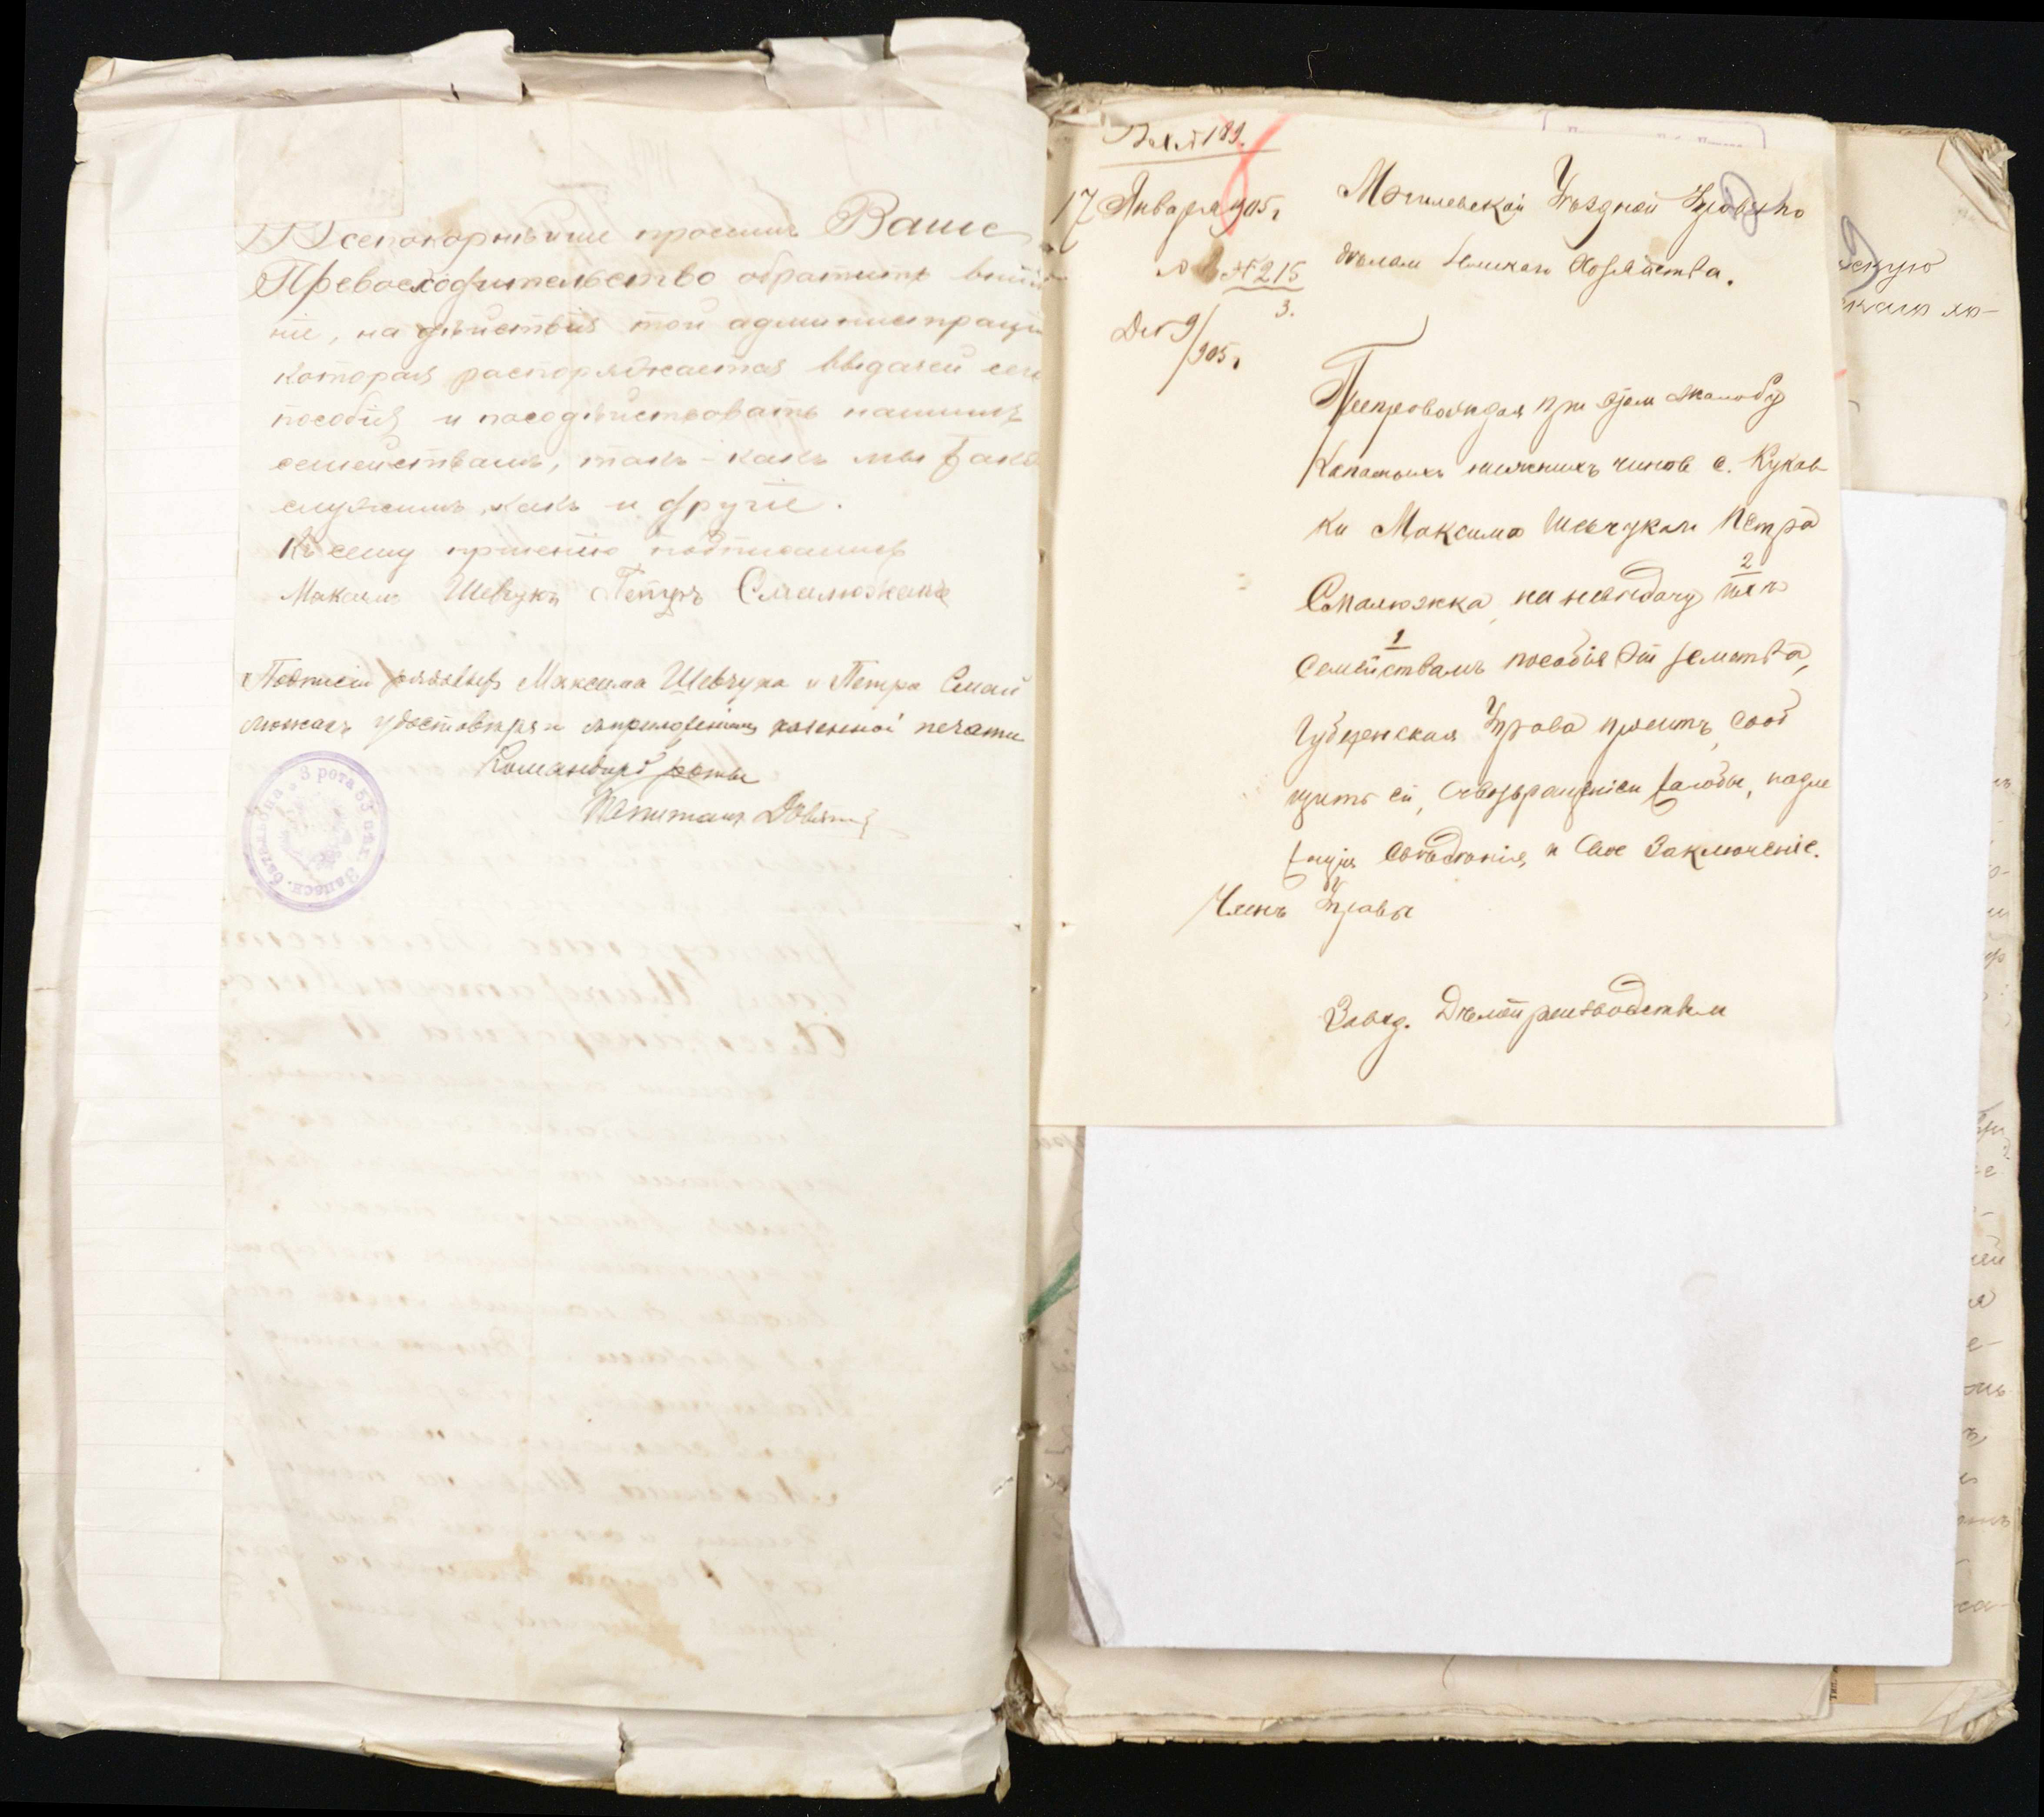 Всепокорнѣйше просимъ Ваше
Превосходительство обратить вни
ніе, на дѣйствія той администраці
которая распоряжается выдачей сего
пособія и посодѣйствовать нашимъ
семействамъ, такъ-какъ мы
служимъ, какъ и другіе.
Къ сему прошенію подписались
Максимъ Шевчукъ Петръ Смалюжокъ
Подписи рядовыхъ Максима Шевчука и Петра Смай
люжокъ удостовѣряю съ приложеніемъ казенной печати
Командиръ роты
Капитанъ
3 рота 53 пѣх. Запасн. баталіона
189.
17 Января 905 г.
№ 215
3.
9/905 г.
Могилевской Уѣздной Управѣ по
дѣламъ Земскаго Хозяйства.
Препровождая при этомъ жалобу
запасныхъ нижнихъ чиновъ с. Кукав
ки Максима Шевчука и Петра
Смалюжка, на невыдачу ихъ 2
1
семействамъ пособія отъ земства,
Губернская Управа проситъ сооб
щить ей, съ возвращеніемъ жалобы, надле
жащія свѣдѣнія и свое заключеніе.
Членъ Управы
Завѣд. Дѣлопроизводствомъ